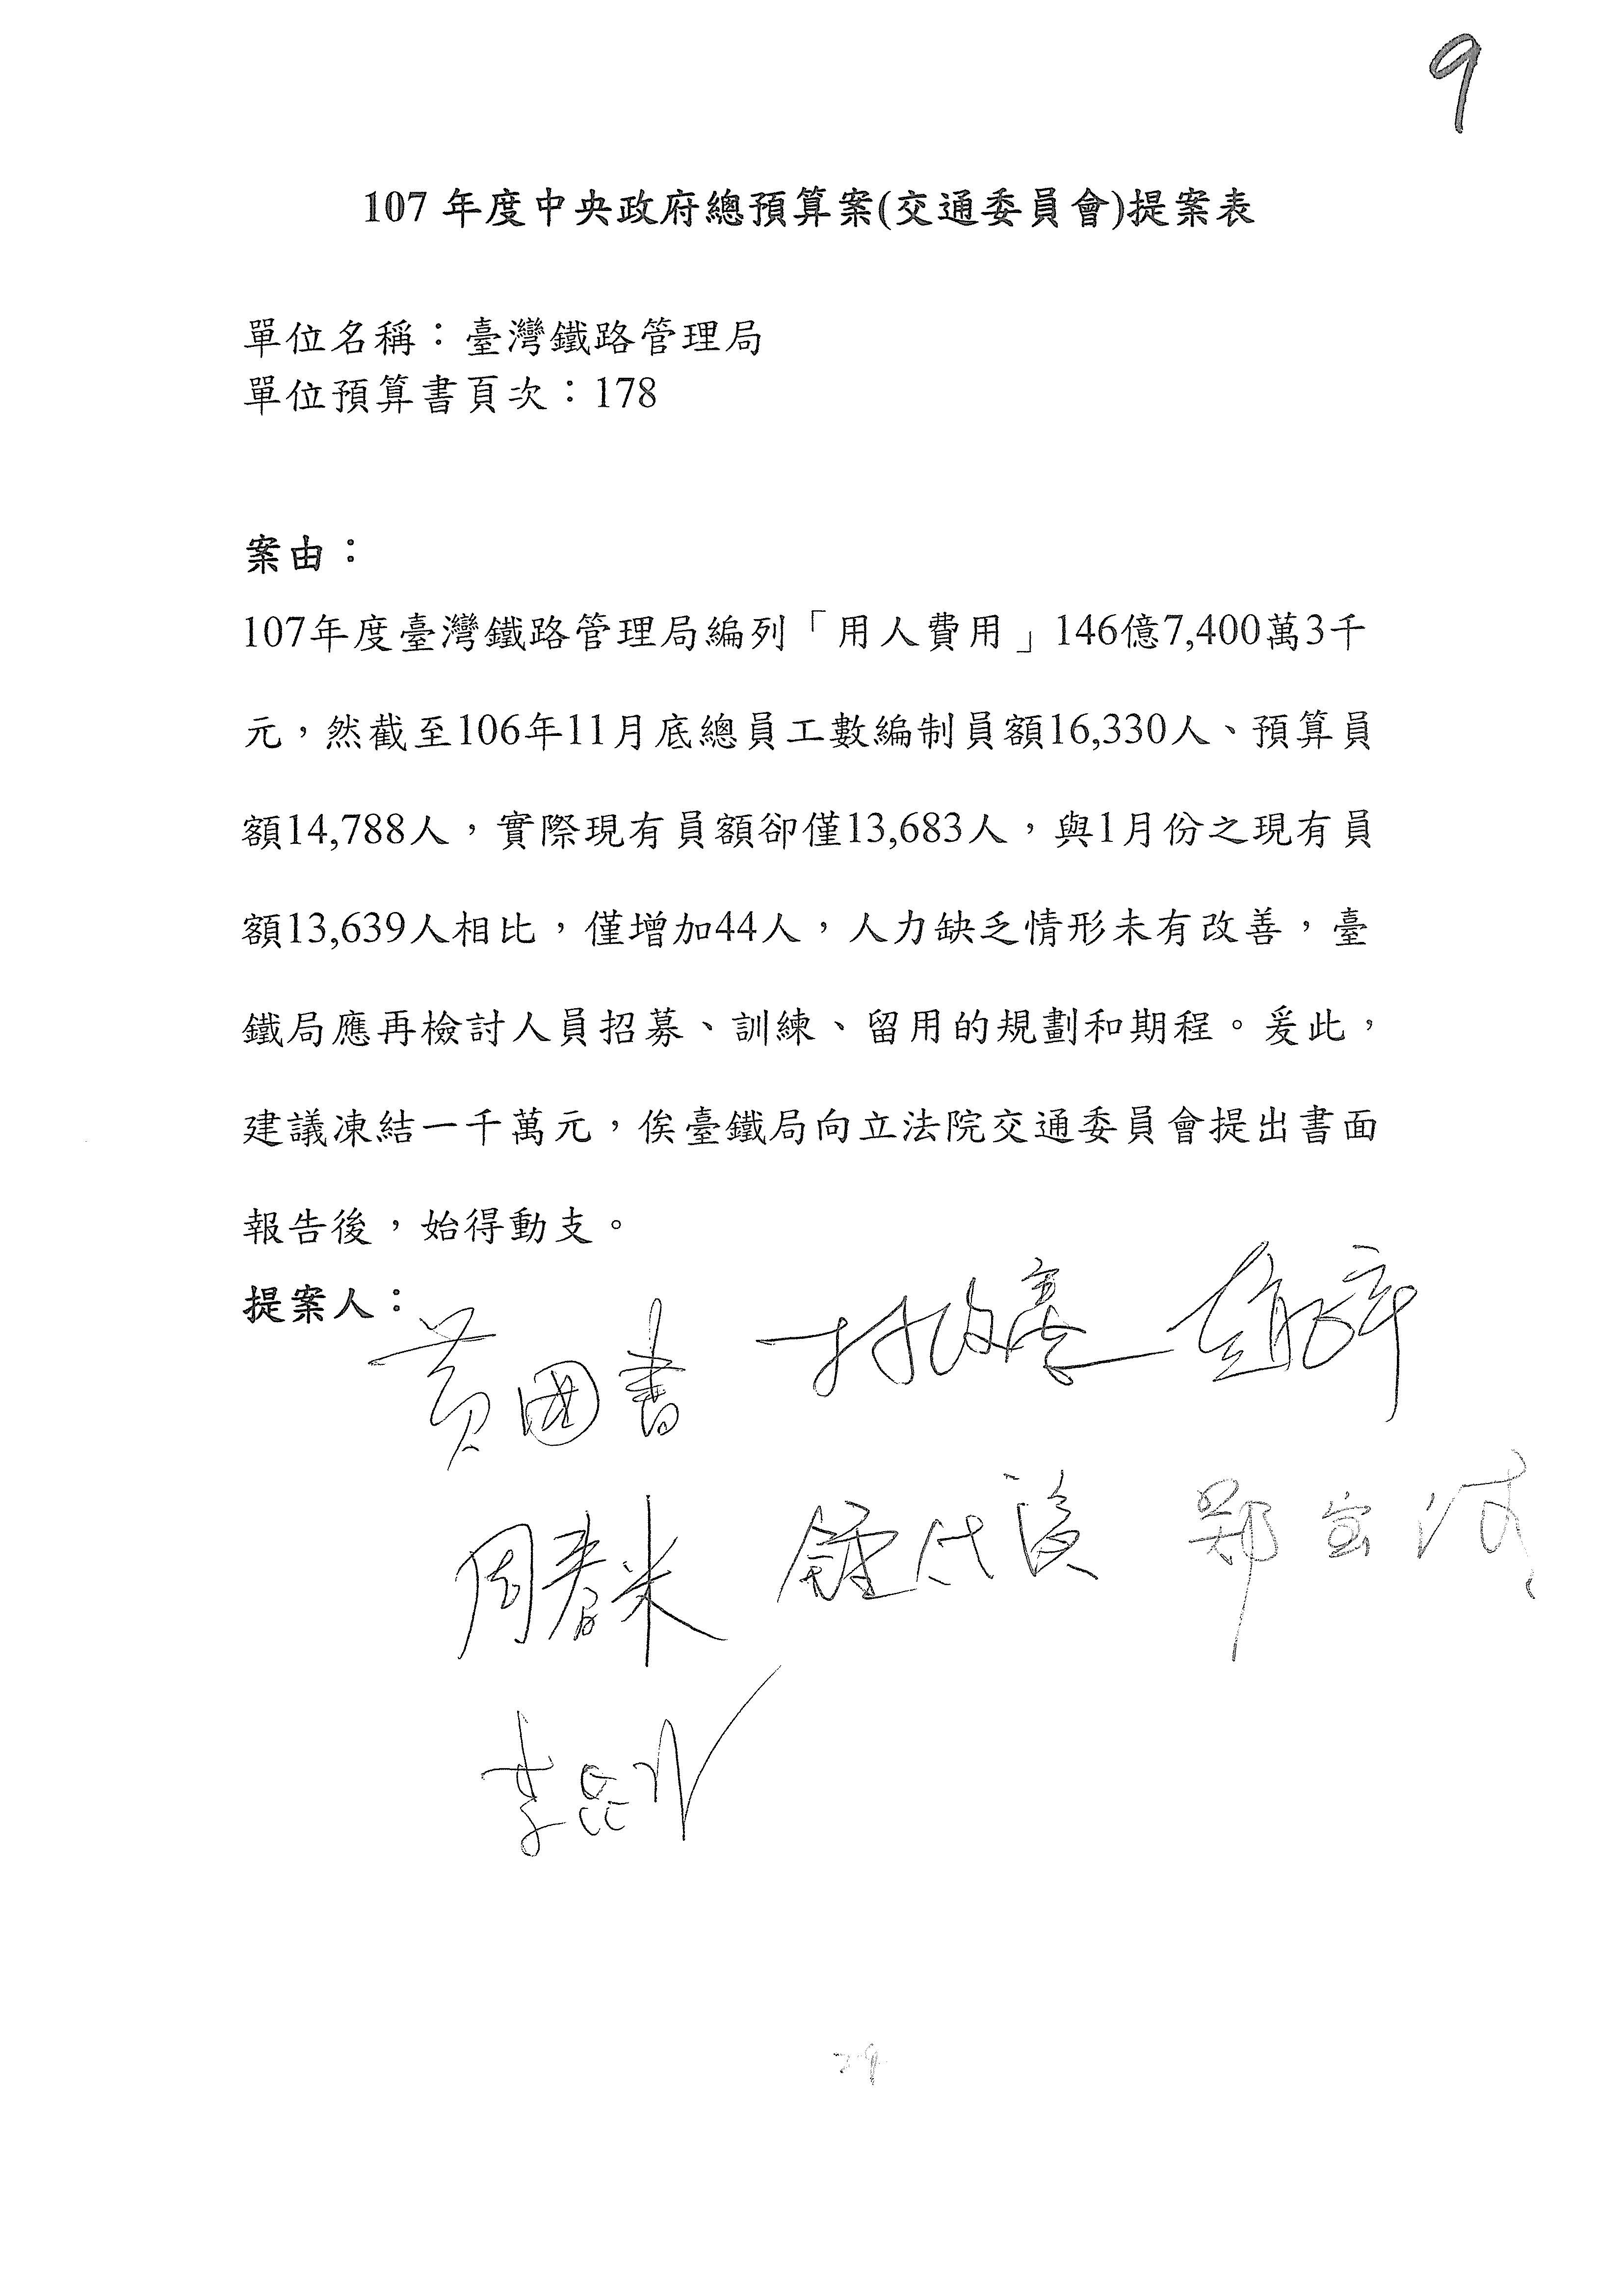 9
107 年度中央政府總預算案(交通委員會)提案表
單位名稱：臺灣鐵路管理局
單位預算書頁次：178
案由：
107年度臺灣鐵路管理局編列「用人費用」146億7,400萬3千
元，然截至106年11月底總員工數編制員額16,330人、預算員
額14,788人，實際現有員額卻僅13,683人，與1月份之現有員
額13,639人相比，僅增加44人，人力缺乏情形未有改善，臺
鐵局應再檢討人員招募、訓練、留用的規劃和期程。爰此，
建議凍結一千萬元，俟臺鐵局向立法院交通委員會提出書面
報告後，始得動支。
提案人：
黃國書 林俊憲
周春米 鄭寶清
李昆澤